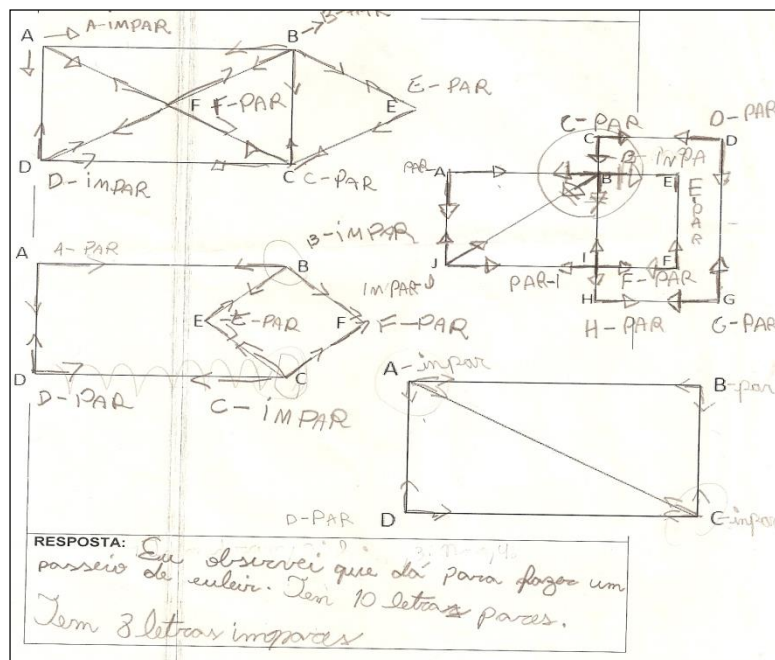 A A-IMPAR
B B-PAR
F F-PAR
E E-PAR
D D-IMPAR
C C-PAR
C C-PAR
D D-PAR
PAR A
B INPA
E E-PAR
J I
PAR-I
F F-PAR
H H-PAR
G G-PAR
A A-PAR
B B-IMPAR
E E-PAR
INPAR-J
F F-PAR
D D-PAR
C C-IMPAR
A-inpar
B-par
D-PAR D
C-inpar
RESPOSTA: Eu observei que dá para fazer um
passeio de euleir. Tem 10 letras pares.
Tem 8 letras impares